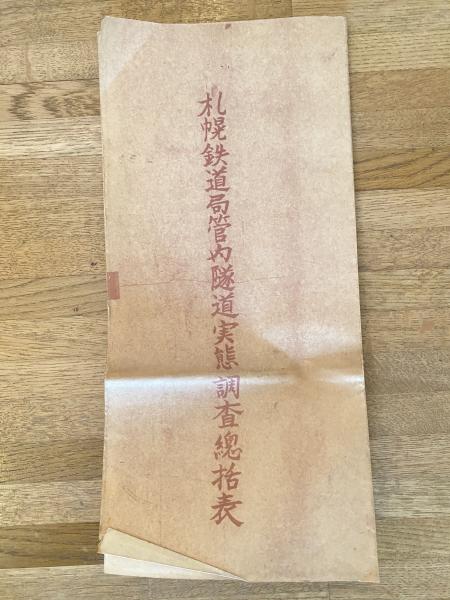 札幌鉄道局管内隧道実態調査總括表